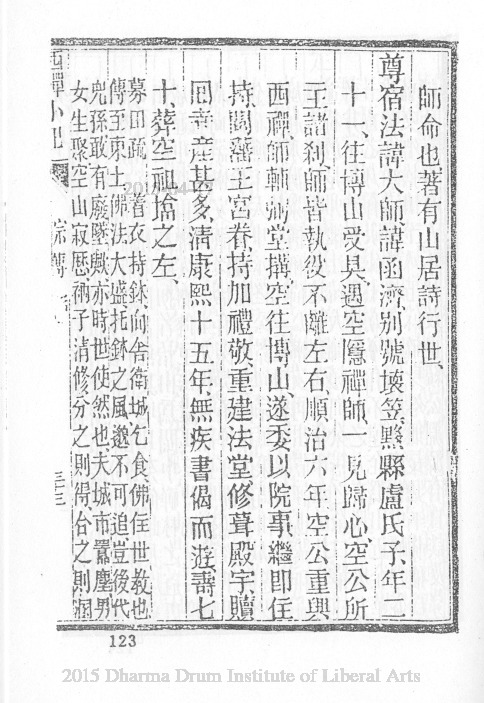 師命也著有山居詩行世、
尊宿法諱大師、諱函濟、別號壞笠、黟縣盧氏子、年二
十一、往博山受具、遇空隱禪師、一見歸心、空公所
主諸刹、師皆執役不離左右、順治六年、空公重興
西禪、師輔弼堂搆、空往博山、遂委以院事、繼即住
持、閩藩王宮眷、持加禮敬、重建法堂、修葺殿宇、贖
回寺產甚多、清康熙十五年、無疾書偈而逝、壽七
十、葬空祖塔之左、
募田疏 着衣持鉢、向舍衛城乞食、佛住世教也
傳至東土、佛法大盛、托鉢之風邈不可追、豈後代
兒孫敢有廢墜歟、亦時世使然也、夫城市囂塵、男
女生聚、空山寂歷、衲子清修、分之則得、合之則溷
西禪小記
宗傳
三三
123
2015 Dharma Drum Institute of Liberal Arts